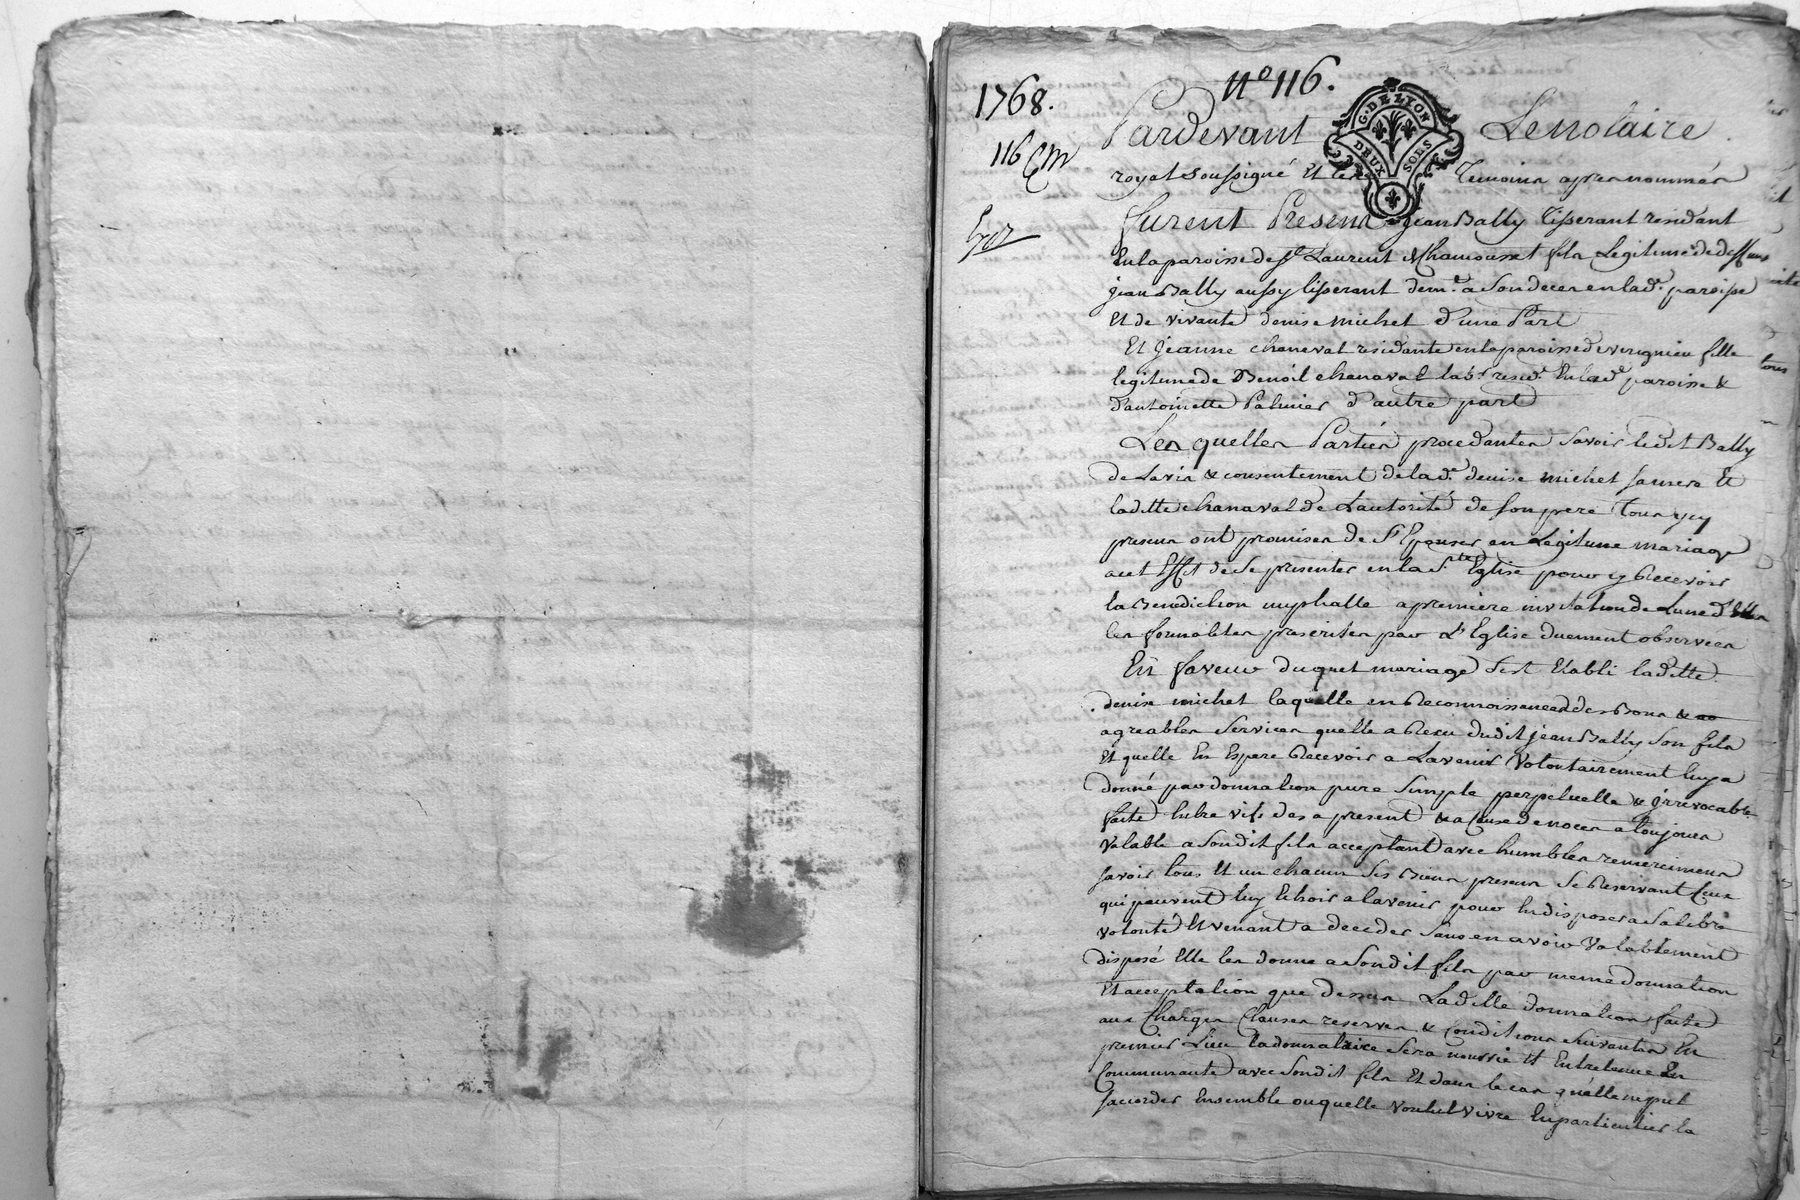 1768.
n° 116.
116 Cm
G. DE LYON
DEUX SOLS
Pardevant Le Notaire
royal soussigné Et les Temoins apres nommés
furent Presens jean Bally Tisserant residant
En la paroisse de St Laurent de Chamousset fils Legitime de deffunt
jean Bally aussy tisserant demt. a son deces en lade. paroisse
Et de vivante denise michet d'une Part
Et jeanne chanaval residante en la paroisse de virignieu fille
legitime de Benoit chanaval labr. residt. En lade. paroisse &
d'antoinette Palmier d'autre part
Les quelles Parties procedantes savoir ledit Bally
de Lavis & consentement de lade. denise michet sa mere Et
laditte chanaval de L'autorité de son pere Tous ycy
presens ont promises de S'Epouser en Legitime mariage
a cet Effet de se presenter en la Ste. Eglise pour y Recevoir
la Benediction nuptialle a premiere invitation de Lune d'Elles
les formalites prescrites par L'Eglise duement observees
En faveur du quel mariage S'est Etabli laditte
denise michet laquelle en Reconnoissance des Bons &
agreables Services quelle a Recu dudit jean Bally Son fils
Et quelle En Espere Recevoir a Lavenir Volontairement luy a
donné par donnation pure Simple perpetuelle & irrevocable
faite Entre vifs des a present & a Cause de noces a toujours
Valable a Sondit fils acceptant avec humbles remerciments
Savoir tous Et un chacun Ses Biens presens Se Reservant Ceux
qui peuvent luy Echoir a lavenir pour En disposer a Sa libre
volonté Et venant a deceder Sans en avoir Valablement
disposé Elle les donne a Sondit fils par meme donnation
Et acceptation que dessus Laditte donnation faite
aux Charges Clauses reserves & Conditions Suivantes En
premier Lieu la donnatrice Sera nourrie Et Entretenue En
Communauté avec Sondit fils Et dans le cas qu'elle ne put
Saccorder Ensemble ou quelle voulut vivre En particulier la